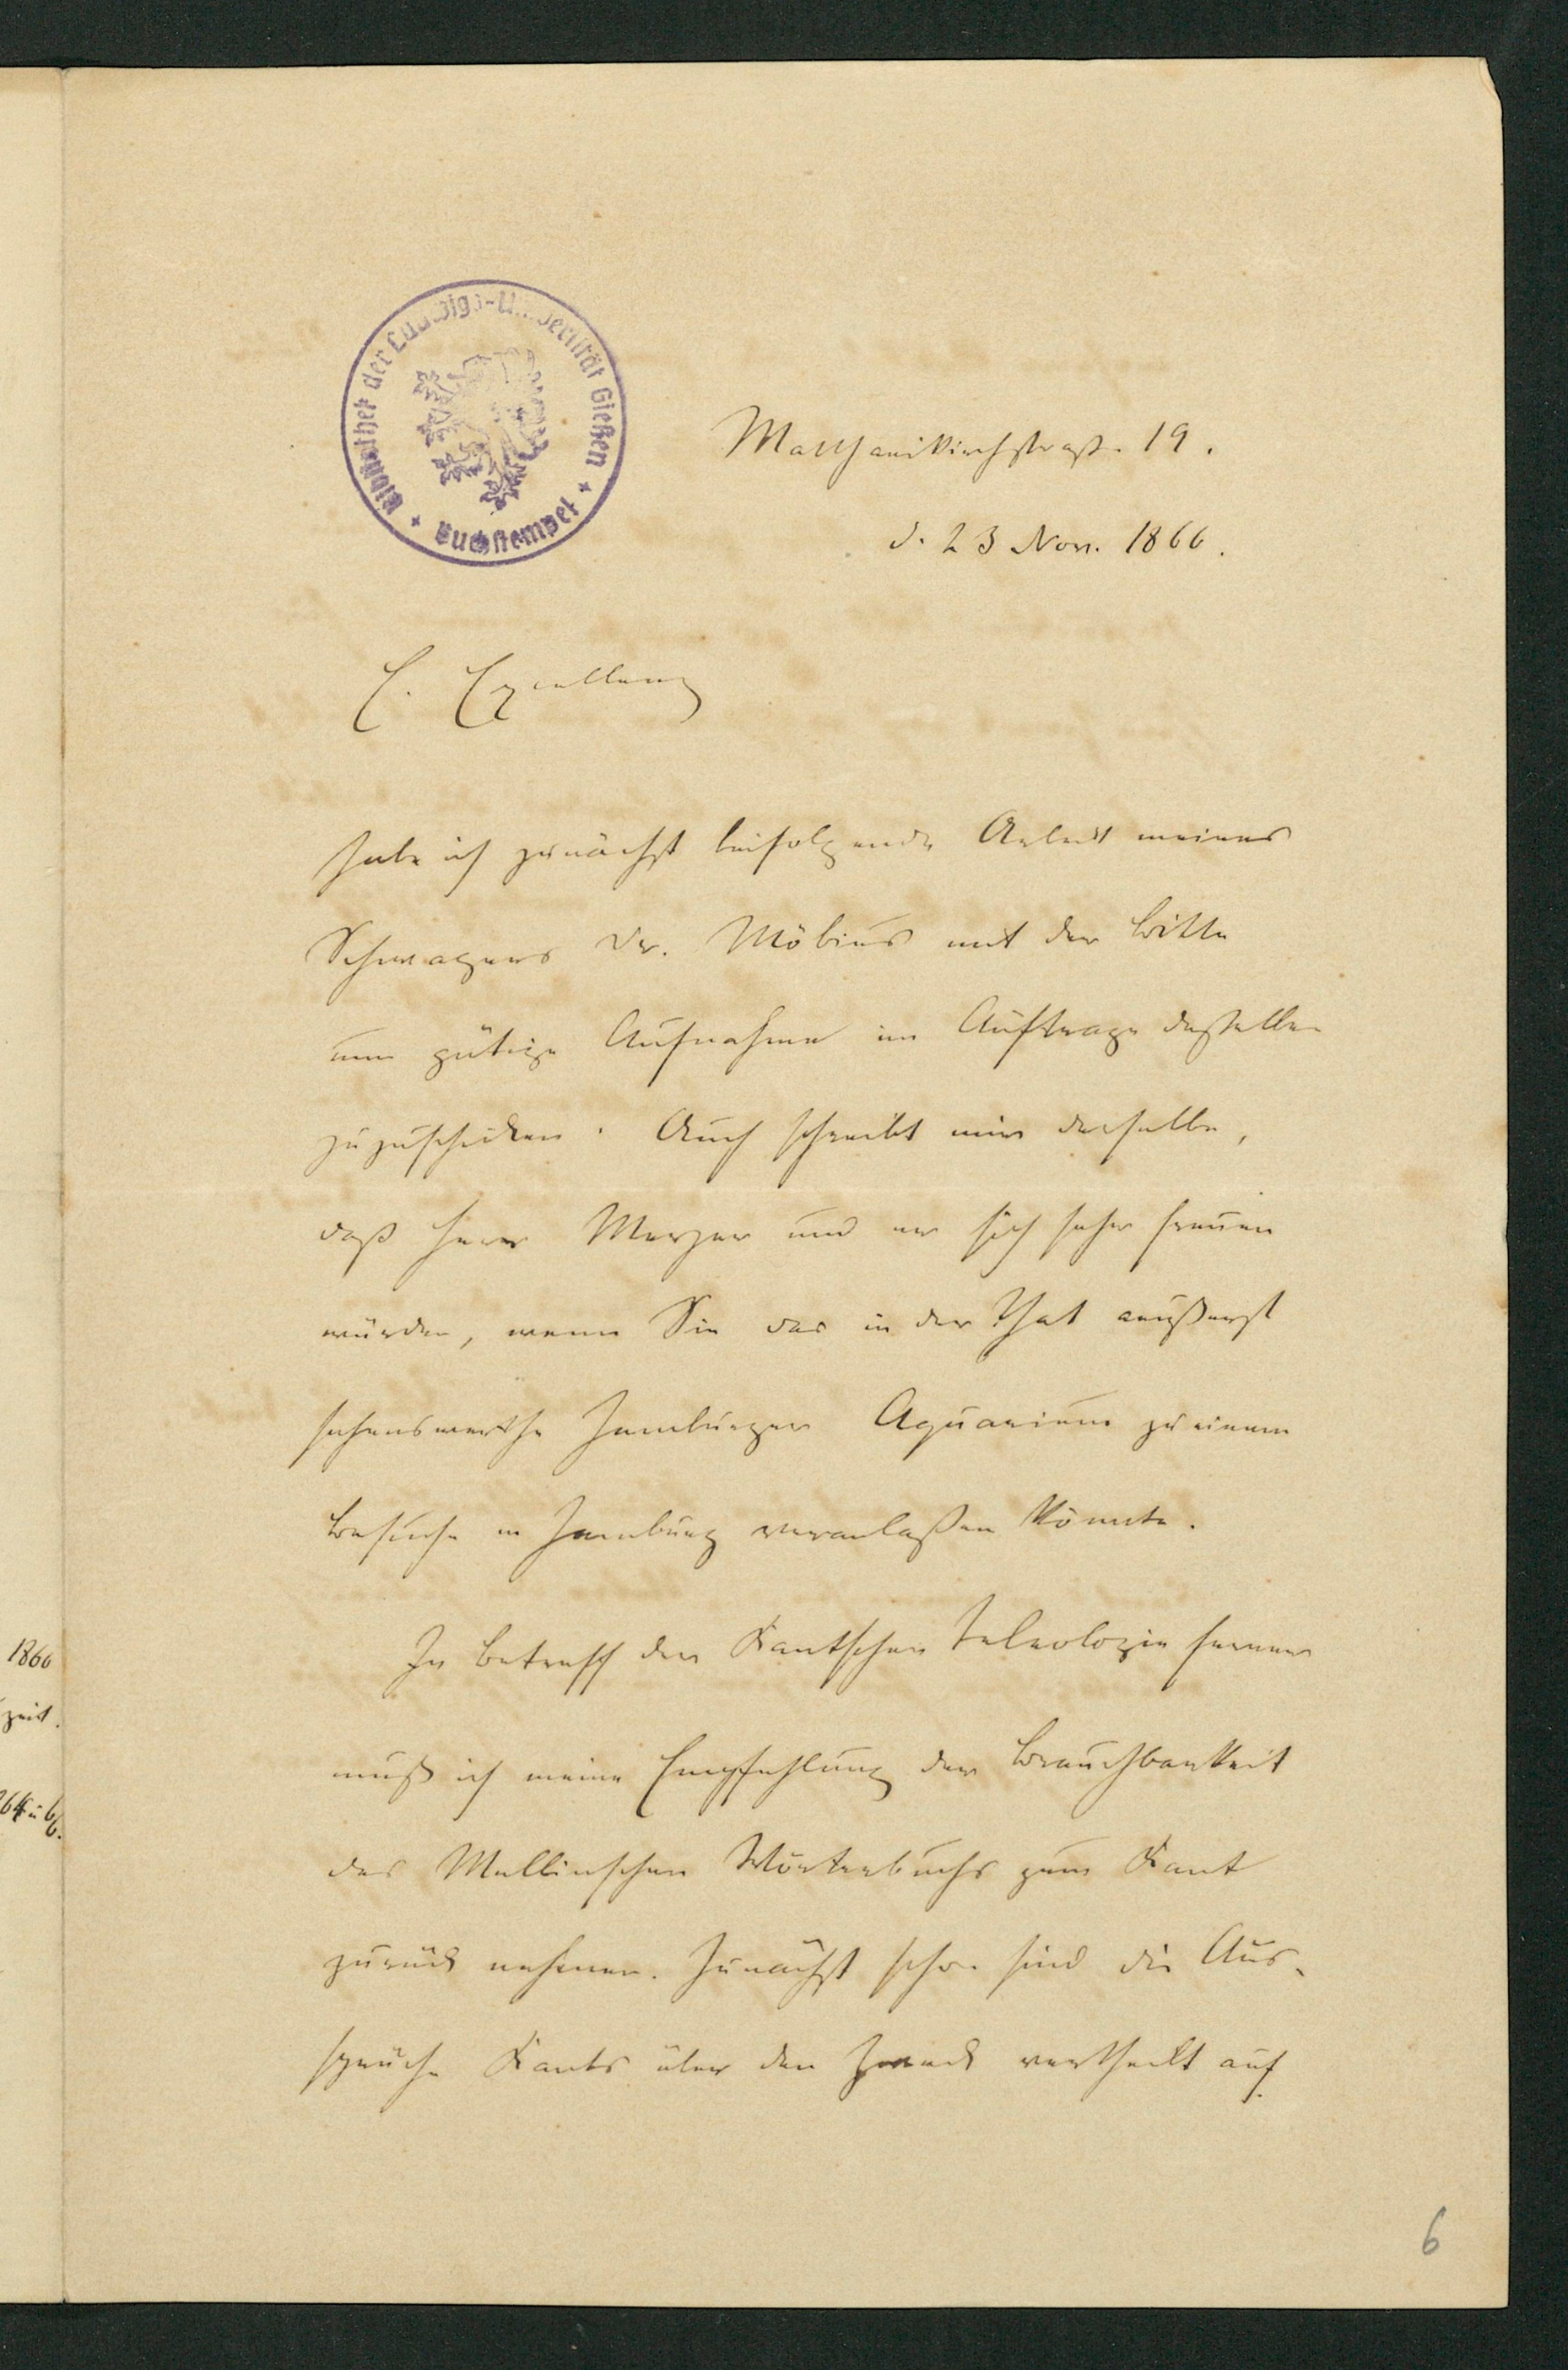 Bibliothek der Ludwigs-Universität Gießen
+ Buchstempel +
Matthaeikirchstraße 19.
d. 23 Nov. 1866.
E. Excellenz
habe ich zunächst beifolgende Arbeit meines
Schwagers Dr. Möbius mit der Bitte
um gütige Aufnahme im Auftrage desselben
zuzuschicken. Auch schreibt mir derselbe,
daß Herr Meyer und er sich sehr freuen
würden, wenn Sie das in der That äußerst
sehenswerthe Hamburger Aquarium zu einem
Besuche in Hamburg veranlaßen könnte.
In Betreff der Kantschen Teleologie ferner
muß ich meine Empfehlung der Brauchbarkeit
des Mellinschen Wörterbuchs zum Kant
zurück nehmen. Zunächst schon sind die Aus-
sprüche Kants über den Zweck vertheilt auf
6
1866
zeit.
64 u 66.